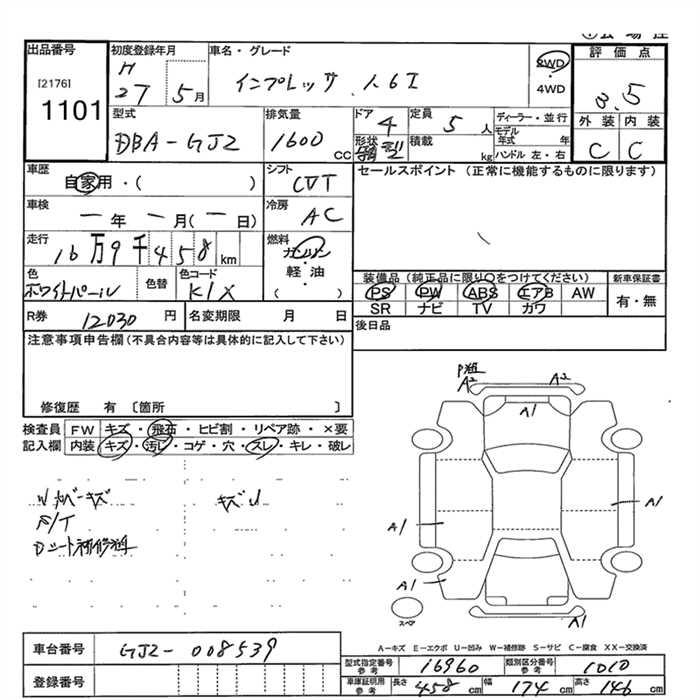 出品番号 初度登録年月 車名・グレード 2WD 4WD 評価点
[2176] H 27 5月 インプレッサ 1.6I 3.5
1101 外装 内装
型式 排気量 ドア 定員 ディーラー・並行
DBA-GJ2 1600 CC 4 5人 モデル年式 年 C C
形状 積載 kg ハンドル 左・右
車歴 シフト セールスポイント (正常に機能するものに限ります)
自家用・( ) CVT
車検 冷房
一年 一月(一日) AC
走行 燃料
16万9千458km ガソリン
軽・油
( )
色 色替 色コード 装備品(純正品に限り○をつけてください) 新車保証書
ホワイトパール K1X PS PW ABS エアB AW 有・無
SR ナビ TV カワ
R券 12030円 名変期限 月 日 後日品
注意事項申告欄(不具合内容等は具体的に記入して下さい)
修復歴 有 〔箇所 〕
検査員 FW キズ・飛石・ヒビ割・リペア跡・×要
記入欄 内装 キズ・汚レ・コゲ・穴・スレ・キレ・破レ
A2 A2
A1
Wカバーキズ キズU
F/T
A1 A1
A1 A1
スペア
A-キズ E-エクボ U-凹み W-補修跡 S-サビ C-腐食 XX-交換済
車台番号 GJ2-008539
登録番号
型式指定番号参考 16960 類別区分番号参考 1010
車庫証明用参考 長さ 458cm 幅 174cm 高さ 146cm